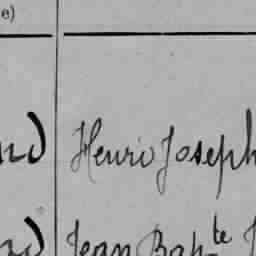 e)
Henri Joseph
Jean Bapte